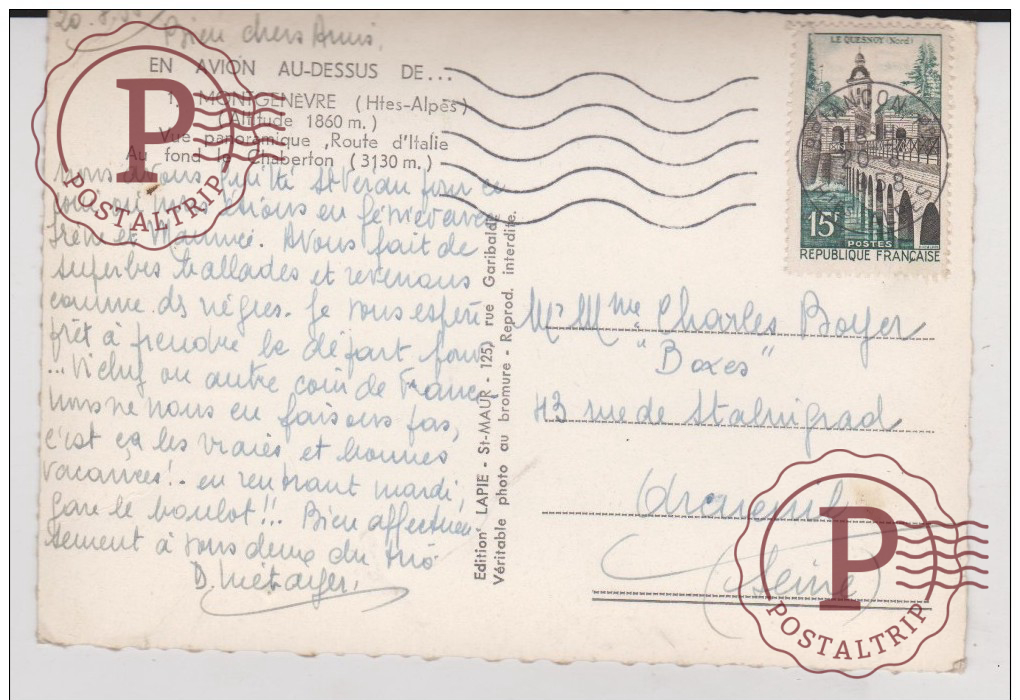 20.8.58
Bien chers Amis,
EN AVION AU-DESSUS DE...
MONTGENÈVRE (Htes-Alpes)
(Altitude 1860 m.)
Vue panoramique, Route d'Italie
Au fond le Chaberton (3130 m.)
Nous avons St Veran
frère et Maurice. Avons fait de
superbes ballades et revenons
comme ds nègres. Je vous espère
prêt à prendre le départ pour
... Vichy ou autre coin de France
nous ne nous en faisons pas,
c'est ça les vraies et bonnes
vacances! - en rentrant mardi,
gare le boulot!!! Bien affectueu
sement à vous deux du trio
Edition LAPIE - St-MAUR - 125, rue Garibaldi
Véritable photo au bromure - Reprod. interdite.
LE QUESNOY (Nord)
15F
POSTES
RÉPUBLIQUE FRANÇAISE
BRIANÇON
Mr Mme Charles Boyer
"Boxes"
43 rue de Stalingrad
Arcueil
(Seine)
P
POSTALTRIP
P
POSTALTRIP